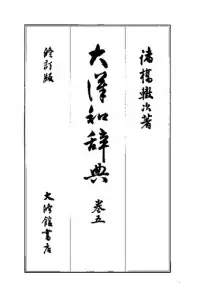 諸橋轍次著
大漢和辞典 巻五
修訂版
大修館書店